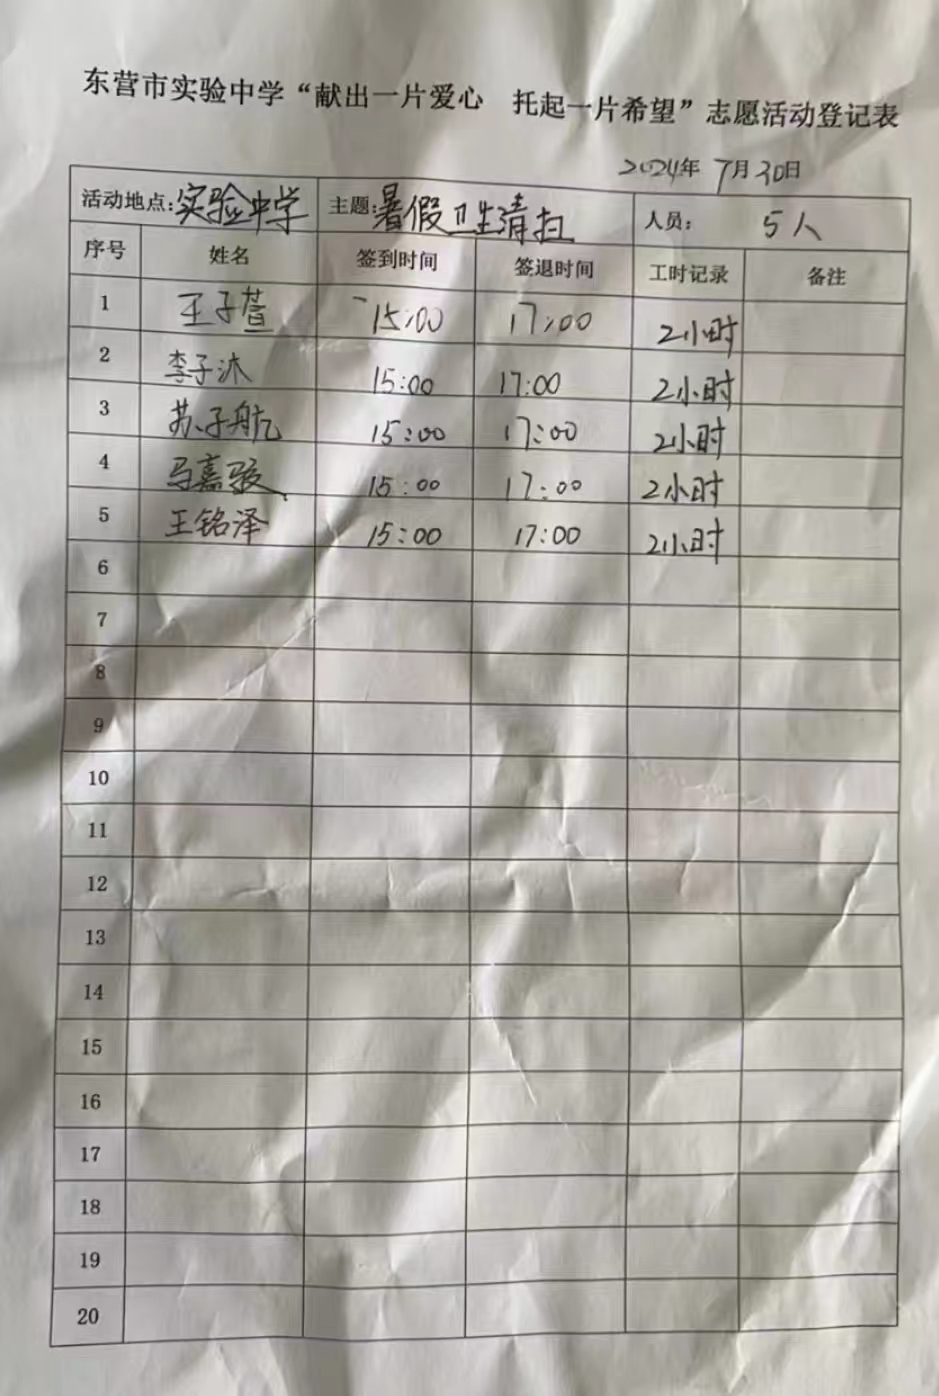 东营市实验中学“献出一片爱心 托起一片希望”志愿活动登记表
2024年 7月30日
活动地点:实验中学 主题:暑假卫生清扫 人员: 5人
序号 姓名 签到时间 签退时间 工时记录 备注
1 王子萱 15:00 17:00 2小时
2 李子沐 15:00 17:00 2小时
3 苏子航 15:00 17:00 2小时
4 马嘉骏 15:00 17:00 2小时
5 王铭泽 15:00 17:00 2小时
6
7
8
9
10
11
12
13
14
15
16
17
18
19
20